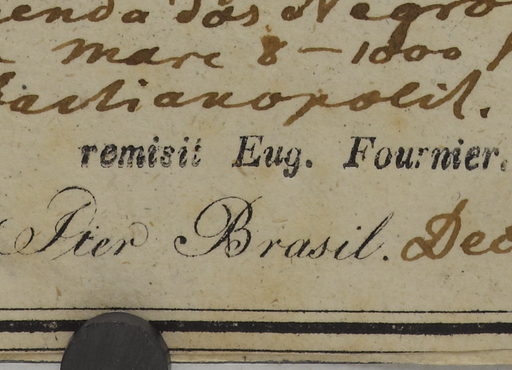 enda dos Negro
Mare 8-1000
astianopolit.
remisit Eug. Fournier.
Iter Brasil. Dec